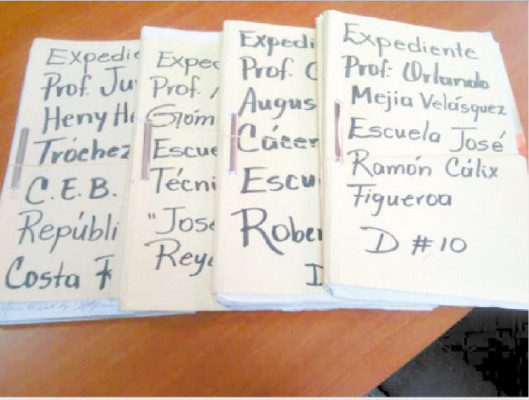 Expedie
Prof. Ju
Heny He
Tróchez
C.E.B.
Repúbli
Costa R
Exped
Prof.
Gióm
Escue
Técni
"Jose
Reye
Expedi
Prof. C
Augus
Cácer
Escu
Rober
D
Expediente
Prof: Orlando
Mejía Velásquez
Escuela José
Ramón Cálix
Figueroa
D #10